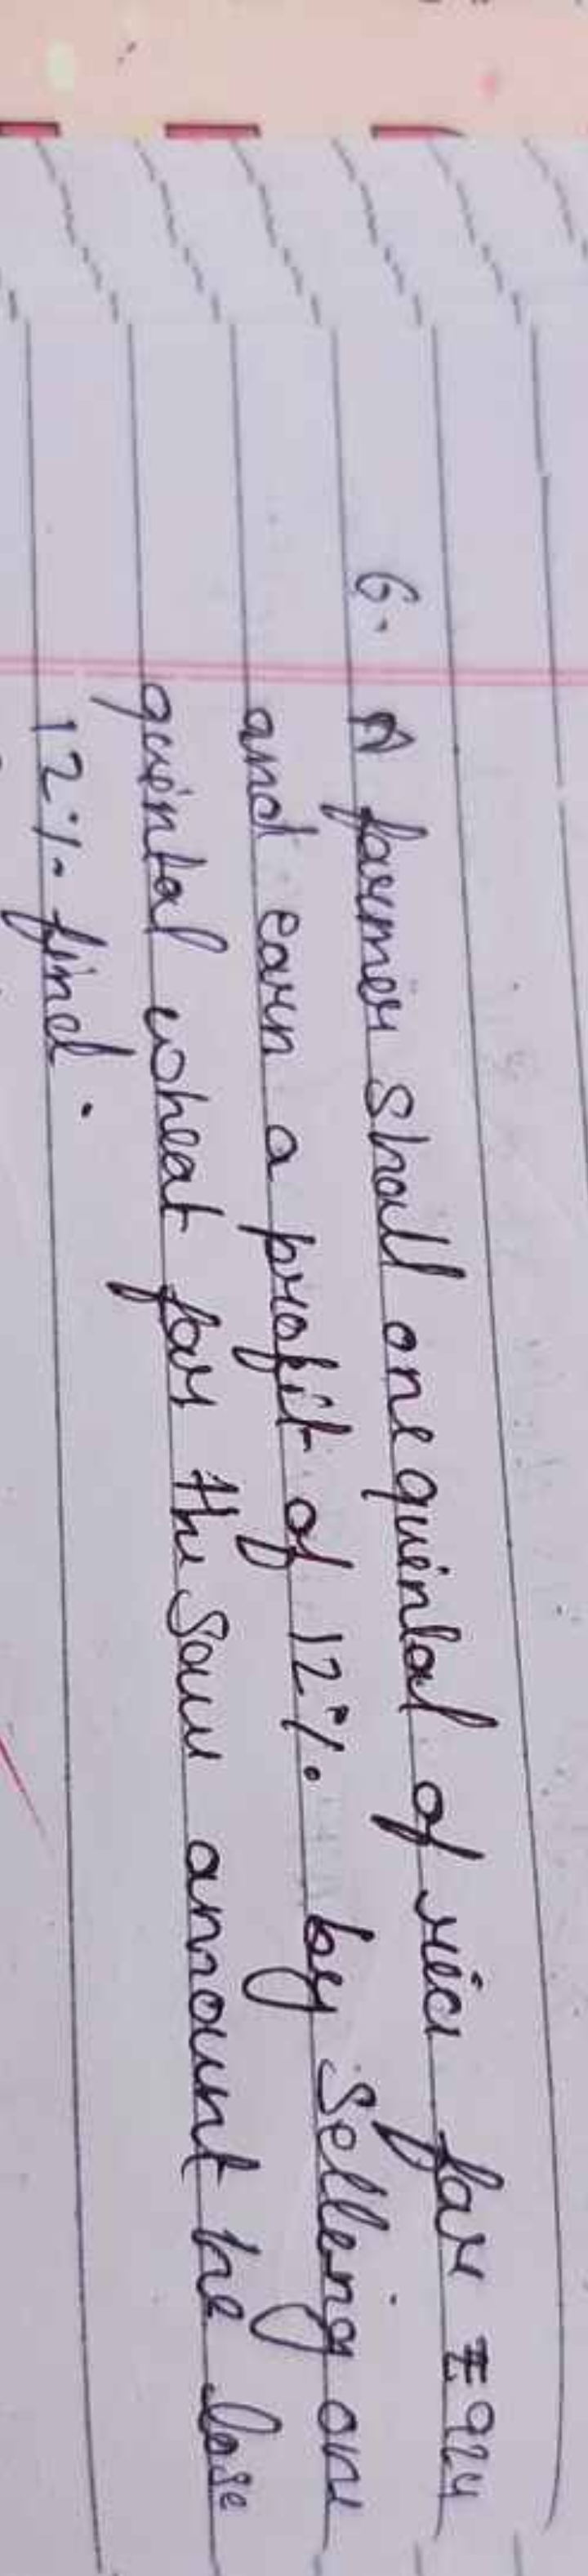 6. A farmer shall one quintal of rice for ₹924
and earn a profit of 12% by selling one
quintal wheat for the same amount he lose
12% find.